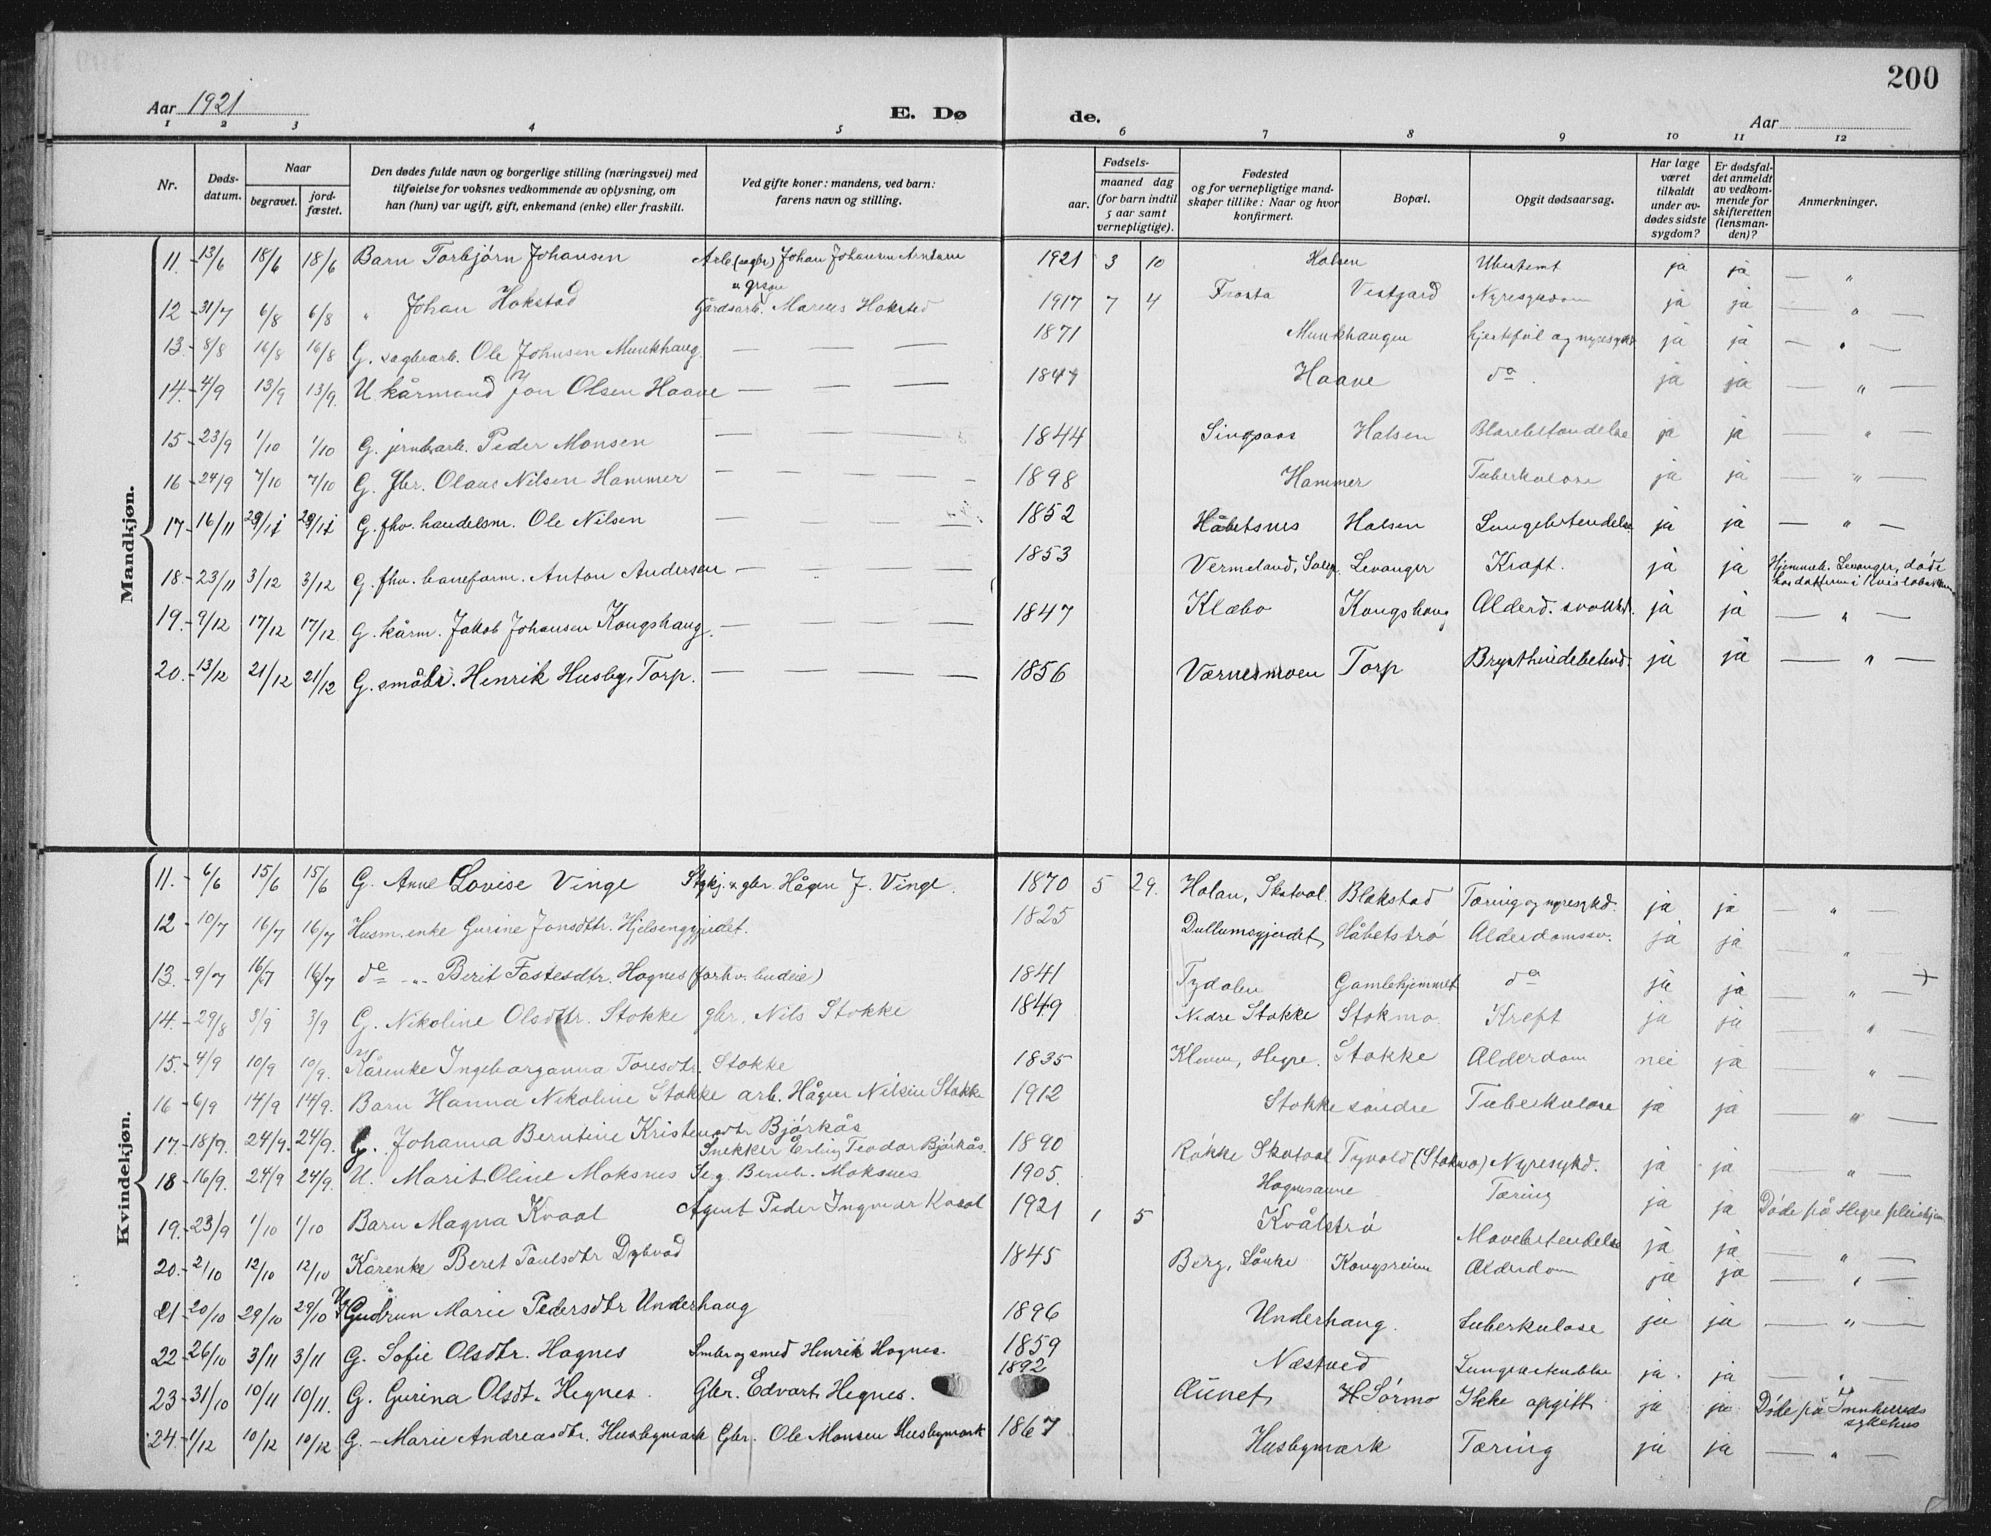 200
Aar 1921
E. Dø
de.
Aar
1 2 3 4 5 6 7 8 9 10 11 12
Nr.
Døds-
datum.
Naar
begravet.
jord-
fæstet.
Den dødes fulde navn og borgerlige stilling (næringsvei) med
tilføielse for voksnes vedkommende av oplysning, om
han (hun) var ugift, gift, enkemand (enke) eller fraskilt.
Ved gifte koner: mandens, ved barn:
farens navn og stilling.
Fødsels-
aar.
maaned dag
(for barn indtil
5 aar samt
vernepligtige).
Fødested
og for vernepligtige mand-
skaper tillike: Naar og hvor
konfirmert.
Bopæl.
Opgit dødsaarsag.
Har læge
været
tilkaldt
under av-
dødes sidste
sygdom?
Er dødsfal-
det anmeldt
av vedkom-
mende for
skifteretten
(lensman-
den)?
Anmerkninger.
Mandkjøn.
11. 13/6 18/6 18/6 Barn Torbjørn Johansen Arb (sagbr) Johan Johansen 1921 3 10 Halsen Ubestemt ja ja — " 
12 31/7 6/8 6/8 " Johan Hokstad Gårdsarb. Marius Hokstad 1917 7 4 Frosta Vestgård Nyresygdom ja ja — " —
13. 8/8 16/8 16/8 G. sagbrarb. Ole Johnsen Munkhaug. — — — 1871 Munkhaugen hjertefeil og nyresykd. ja ja — " —
14. 4/9 13/9 13/9. U. kårmand Jon Olsen Haave — — — 1847 Haave do. ja ja — " —
15 23/9 1/10 1/10 G. jernbarb. Peder Monsen — — — 1844 Singsaas Halsen Blærebetændelse ja ja — " —
16 24/9 7/10 7/10 G. Gbr. Olaus Nilsen Hammer — — — 1898 Hammer Tuberkulose ja ja — " —
17 16/11 29/11 29/11 G. fhv. handelsm. Ole Nilsen — — — 1852 Håbetsnes Halsen Lungebetendelse ja ja — " —
18. 23/11 3/12 3/12 G. fhv. baneform. Anton Andersen — — — 1853 Vermeland, Levanger Kræft. ja ja Hjemmeh. Levanger, døde
hos datteren i
19. 9/12 17/12 17/12 G. kårm. Jakob Johansen Kongshaug. — — — 1847 Klæbo Kongshaug Alderd. svakhet. ja ja — " —
20. 13/12 21/12 21/12 G. småbr. Henrik Husby, Torp. — — — 1856 Værnesmoen Torp Brysthindebetend. ja ja — " —
Kvindekjøn.
11. 6/6 15/6 15/6 G. Anne Lovise Vinge Stykj. & gbr. Hågen J. Vinge. 1870 5 29. Holan, Skatval Blokstad Tæring og nyresykd. ja ja — " —
12 10/7 16/7 16/7 Husm. enke Gurine Jonsdtr. Hjelsenggjerdet. 1825 Dullumsgjerdet Håbetstrø Alderdomssv. ja ja — " —
13. 9/7 16/7 16/7 do -"- Berit Fastesdtr. Hognes (forhv. budeie) 1841 Tydalen Gamlehjemmet do ja ja — " — +
14. 29/8 3/9 3/9 G. Nikoline Olsdtr. Stokke gbr. Nils Stokke 1849 Nedre Stokke Stokmo Kreft ja ja — " —
15. 4/9 10/9 10/9. Kårenke Ingeborganna Toresdtr. Stokke 1835 Kleven, Hegre. Stokke Alderdom nei ja — " —
16 6/9 14/9 14/9. Barn Hanna Nikoline Stokke arb. Hågen Nilsen Stokke 1912 Stokke søndre Tuberkulose ja ja — " —
17. 18/9. 24/9. 24/9. G. Johanna Berntine Kristensdtr Bjørkås
Snekker Erling Teodor Bjørkås. 1890 Røkke Skatval Tyvold (Stokmo) Nyresykd. ja ja — " —
18 16/9. 24/9 24/9. U. Marit Oline Moksnes Seg. Bernh. Moksnes 1905. Hognesaune Tæring ja ja Døde på Hegre pleiehjem
19. 23/9 1/10 1/10 Barn Magna Kvaal Agent Peder Ingvar Kvaal 1921 1 5 Kvålstrø Mavebetendelse ja ja — " —
20. 2/10 12/10 12/10 Kårenke Beret Paulsdtr Dybvad 1845 Berg, Lånke Kongsreien Alderdom ja ja — " —
21 20/10 29/10 29/10 Gudrun Marie Pedersdtr Underhaug 1896 Underhaug. Tuberkulose ja ja — " —
22 26/10 3/11 3/11 G. Sofie Olsdtr. Hognes Smbr og smed Henrik Hognes. 1859 Næstved ja. ja — " —
23 31/10 10/11 10/11. G. Gurina Olsdt. Hegnes. Gbr. Edvart Hegnes. 1892 Aunet H Sørmo Ikke opgitt ja ja Døde på Innherreds
sykehus
24. 1/12 10/12 10/12 G. Marie Andreasdtr. Husbymark Gbr. Ole Monsen Husbymark 1867 Husbymark Tæring ja ja — " —